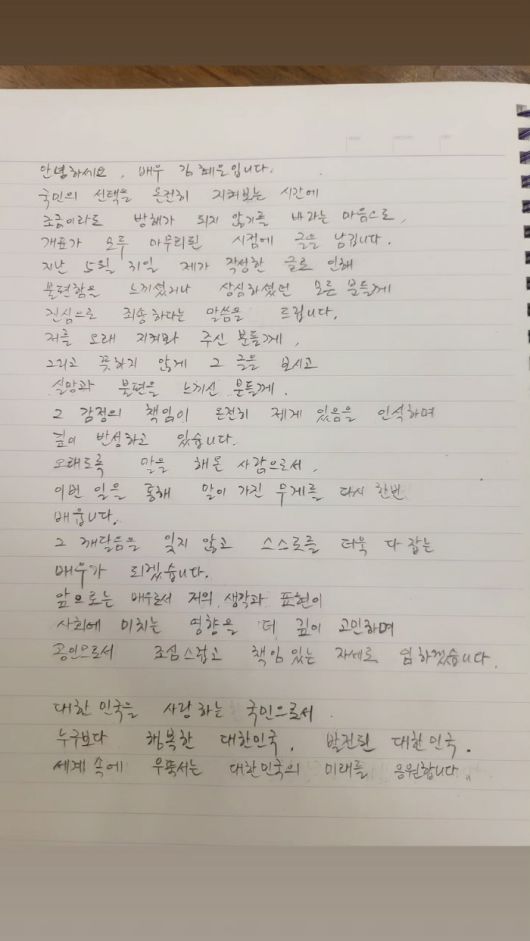 안녕하세요, 배우 김혜은입니다.
국민의 선택을 온전히 지켜보는 시간에
조금이라도 방해가 되지 않기를 바라는 마음으로,
개표가 모두 마무리된 시점에 글을 남깁니다.
지난 5월 31일 제가 작성한 글로 인해
불편함을 느끼셨거나 상심하셨던 모든 분들께
진심으로 죄송하다는 말씀을 드립니다.
저를 오래 지켜봐 주신 분들께,
그리고 뜻하지 않게 그 글을 보시고
실망과 불편을 느끼신 분들께.
그 감정의 책임이 온전히 제게 있음을 인식하며
깊이 반성하고 있습니다.
오래도록 말을 해온 사람으로서,
이번 일을 통해 말이 가진 무게를 다시 한번
배웁니다.
그 깨달음을 잊지 않고 스스로를 더욱 다잡는
배우가 되겠습니다.
앞으로는 배우로서 저의 생각과 표현이
사회에 미치는 영향을 더 깊이 고민하며
공인으로서 조심스럽고 책임 있는 자세로 임하겠습니다.
대한민국을 사랑하는 국민으로서
누구보다 행복한 대한민국, 발전된 대한민국.
세계 속에 우뚝서는 대한민국의 미래를 응원합니다.